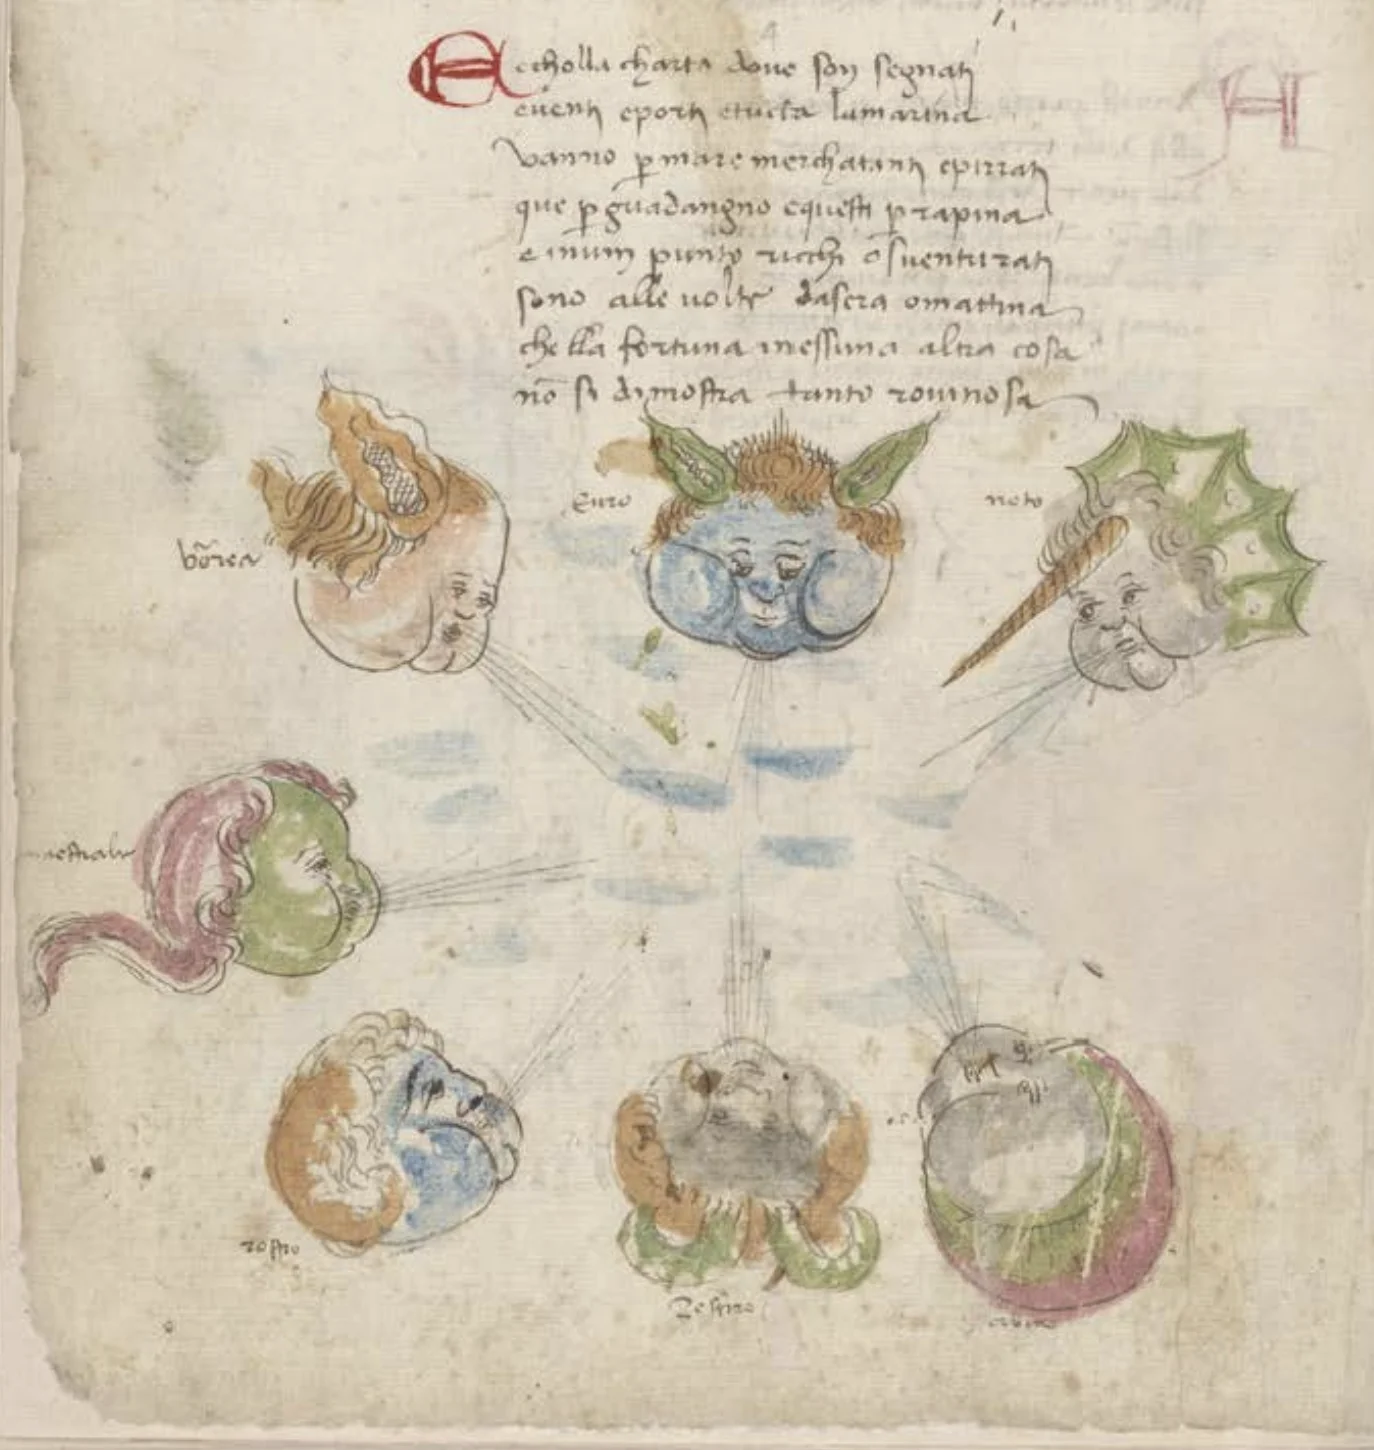 Echolla charta doue son segnati
euenti eporti etucta lamarina
vanno p mare merchatanti epirrati
que p guadangno equesti p rapina
e inum punto ricchi osuenturati
sono alle uolte dasera omattina
che lla fortuna inessuna altra cosa
nō si dimostra tanto rouinosa
H
Euro
noto
bōrea
maestrale